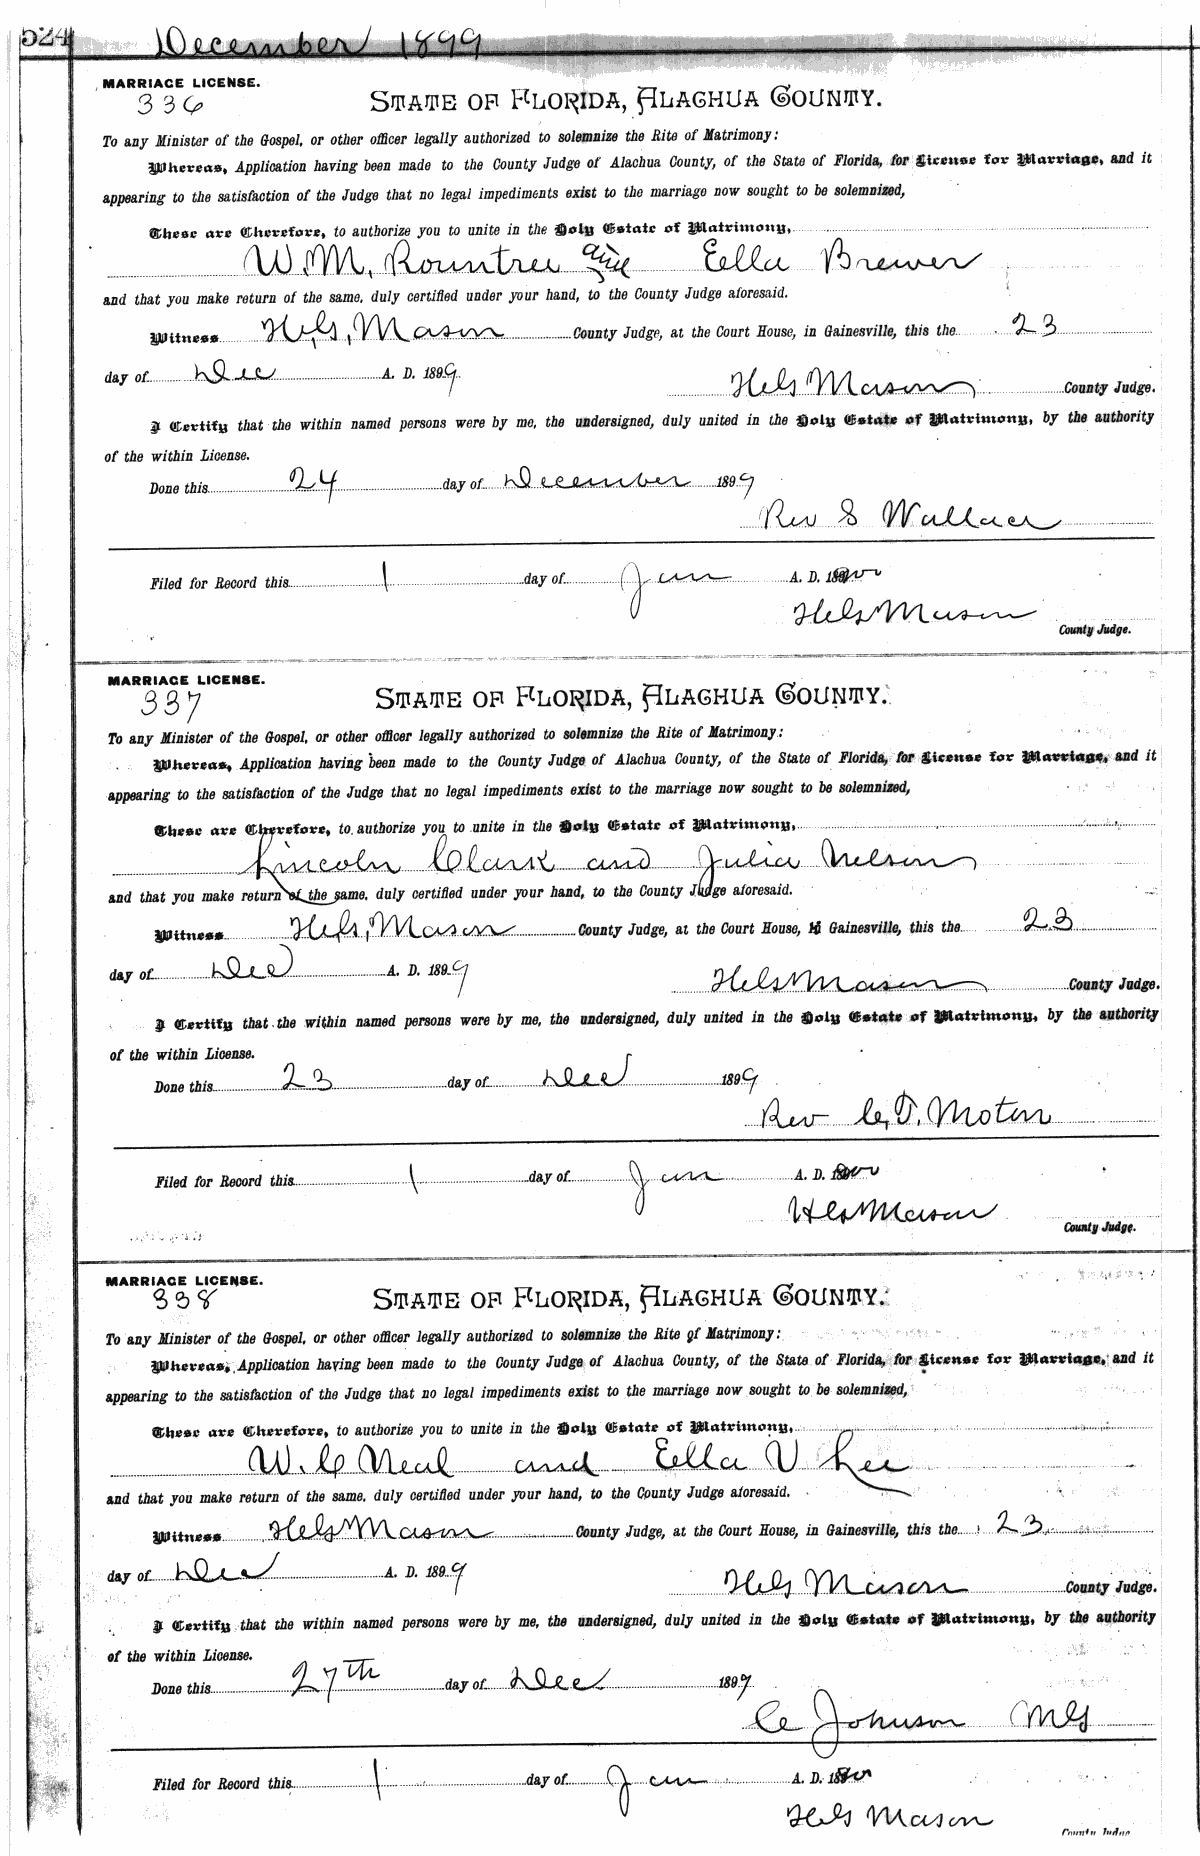 524 December 1899
MARRIAGE LICENSE.
336
STATE OF FLORIDA, ALACHUA COUNTY.
To any Minister of the Gospel, or other officer legally authorized to solemnize the Rite of Matrimony:
Whereas, Application having been made to the County Judge of Alachua County, of the State of Florida, for License for Marriage, and it
appearing to the satisfaction of the Judge that no legal impediments exist to the marriage now sought to be solemnized,
These are Therefore, to authorize you to unite in the Holy Estate of Matrimony,
W. M. Rountree and Ella Brewer
and that you make return of the same, duly certified under your hand, to the County Judge aforesaid.
Witness H. G. Mason County Judge, at the Court House, in Gainesville, this the 23
day of Dec A. D. 1899
H G Mason County Judge.
I Certify that the within named persons were by me, the undersigned, duly united in the Holy Estate of Matrimony, by the authority
of the within License.
Done this 24 day of December 1899
Rev S Wallace
Filed for Record this 1 day of Jan A. D. 1900
H G Mason
County Judge.
MARRIAGE LICENSE.
337
STATE OF FLORIDA, ALACHUA COUNTY.
To any Minister of the Gospel, or other officer legally authorized to solemnize the Rite of Matrimony:
Whereas, Application having been made to the County Judge of Alachua County, of the State of Florida, for License for Marriage, and it
appearing to the satisfaction of the Judge that no legal impediments exist to the marriage now sought to be solemnized,
These are Therefore, to authorize you to unite in the Holy Estate of Matrimony,
Lincoln Clark and Julia Nelson
and that you make return of the same, duly certified under your hand, to the County Judge aforesaid.
Witness H. G. Mason County Judge, at the Court House, in Gainesville, this the 23
day of Dec A. D. 1899
H G Mason County Judge.
I Certify that the within named persons were by me, the undersigned, duly united in the Holy Estate of Matrimony, by the authority
of the within License.
Done this 23 day of Dec 1899
Rev C. T. Moten
Filed for Record this 1 day of Jan A. D. 1900
H G Mason
County Judge.
MARRIAGE LICENSE.
338
STATE OF FLORIDA, ALACHUA COUNTY.
To any Minister of the Gospel, or other officer legally authorized to solemnize the Rite of Matrimony:
Whereas, Application having been made to the County Judge of Alachua County, of the State of Florida, for License for Marriage, and it
appearing to the satisfaction of the Judge that no legal impediments exist to the marriage now sought to be solemnized,
These are Therefore, to authorize you to unite in the Holy Estate of Matrimony,
W. C Neal and Ella V Lee
and that you make return of the same, duly certified under your hand, to the County Judge aforesaid.
Witness H G Mason County Judge, at the Court House, in Gainesville, this the 23
day of Dec A. D. 1899
H G Mason County Judge.
I Certify that the within named persons were by me, the undersigned, duly united in the Holy Estate of Matrimony, by the authority
of the within License.
Done this 27th day of Dec 1899
C Johnson M G
Filed for Record this 1 day of Jan A. D. 1900
H G Mason
County Judge